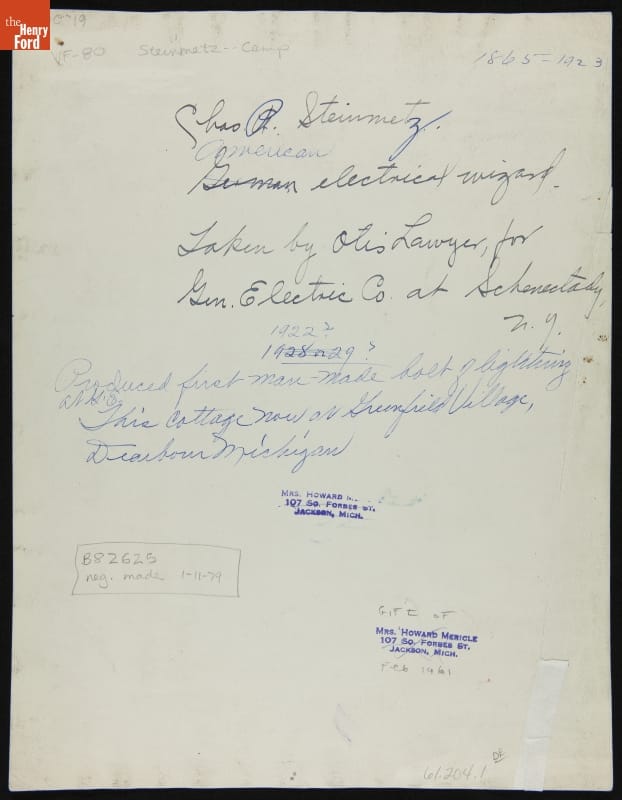 the
Henry
Ford
VF-80 Steinmetz--Camp
1865-1923
Chas P. Steinmetz.
American
German electrical wizard.
Taken by Otis Lawyer, for
Gen. Electric Co. at Schenectady,
N.Y.
1922?
1928 or 29?
Produced first man-made bolt of lightning
at G.E.
This cottage now at Greenfield Village,
Dearbourn Michigan
MRS. HOWARD M
107 SO. FORBES ST.
JACKSON, MICH.
B82625
neg. made 1-11-79
GIFT OF
MRS. HOWARD MERICLE
107 SO. FORBES ST.
JACKSON, MICH.
FEB 1961
DF
61.204.1